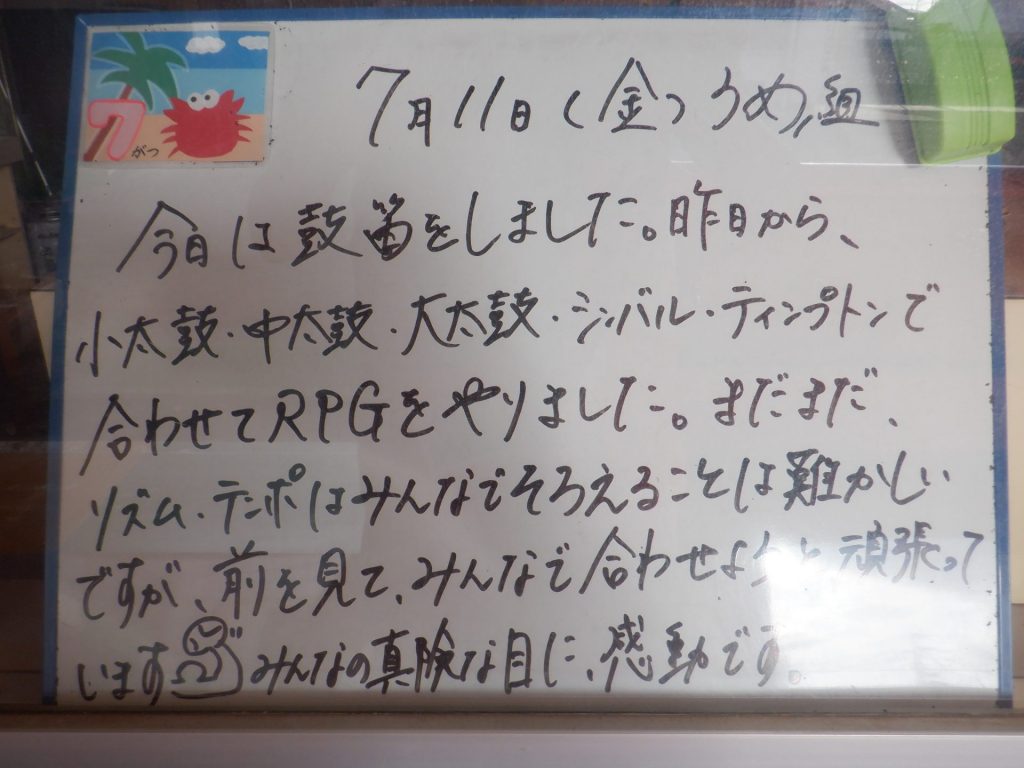 7
がつ
7月11日(金) うめ組
今日は鼓笛をしました。昨日から、
小太鼓・中太鼓・大太鼓・シンバル・ティンプトンで
合わせてRPGをやりました。まだまだ、
リズム・テンポはみんなでそろえることは難かしい
ですが、前を見て、みんなで合わせようと頑張って
います みんなの真険な目に、感動です。